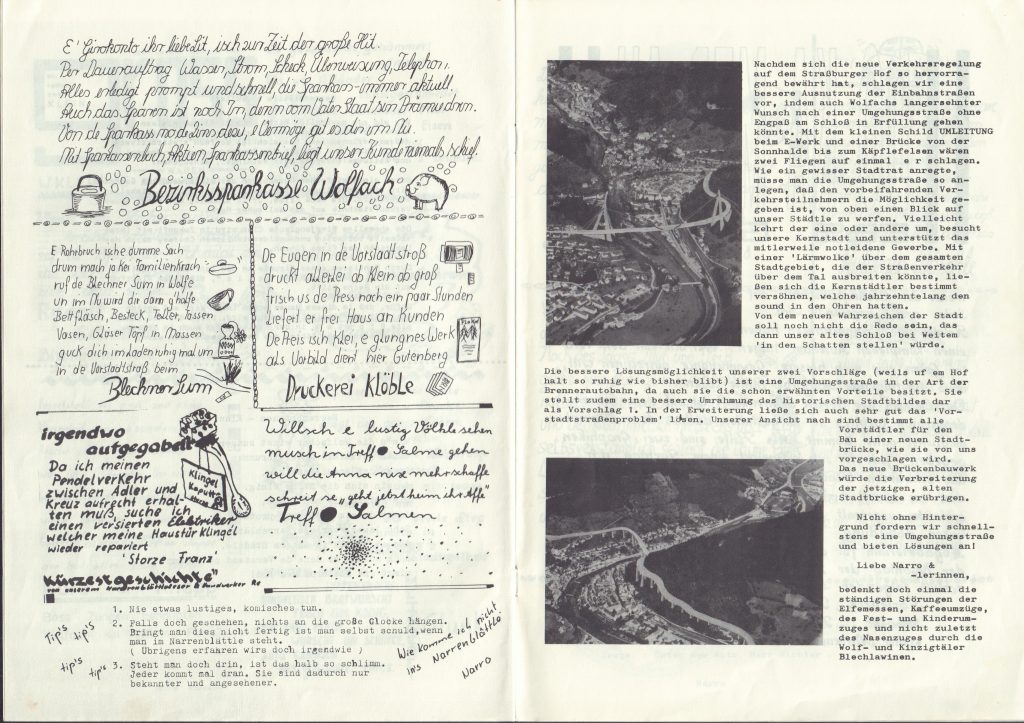 E' Girokonto ihr liebe Lit, isch zur Zeit der große Hit.
Per Dauerauftrag Wasser, Strom, Scheck, Überweisung, Telephon,
Alles erledigt prompt und schnell, die Sparkass-immer aktuell.
Auch das Sparen ist noch In, denn vom Vater Staat sin Prämie drin.
Von de Sparkass no de Zins dezu, e Vermöge git es der im Nu.
Mit Sparkassenbuch, Aktien, Sparkassenbrief, liegt unser Kunde niemals schief.
Bezirkssparkasse Wolfach
E Rohrbruch isch e dumme Sach
drum mach jo kei Familienkrach
ruf de Blechner Sum in Wolfe
un im Nu wird dir dann g'holfe
Bettfläsch, Besteck, Teller, Tassen
Vasen, Gläser Töpf in Massen
guck dich im Laden ruhig mal um
In de Vorstadtstroß beim
Blechner Sum
De Eugen in de Vorstadtstroß
druckt allerlei ob klein ob groß
frisch us de Press noch ein paar Stunden
liefert er frei Haus an Kunden
De Preis isch klei, e glungnes Werk
als Vorbild dient hier Gutenberg
Druckerei Klöble
irgendwo
aufgegabelt
Da ich meinen
Pendelverkehr
zwischen Adler und
Kreuz aufrecht erhal-
ten muß, suche ich
einen versierten Elektriker
welcher meine Haustürklingel
wieder repariert
'Storze Franz'
Klingel
Kaputt
Willsch e lustig Völkle sehen
musch im Treff Salme gehen
will die Anna nix mehr schaffe
schreit se „geht jetzt heim ihr Affe"
Treff Salmen
"Kürzestgeschichte"
von unserem Narrenblattleser & Handwerker Re
Tip's tip's
tip's tip's
1. Nie etwas lustiges, komisches tun.
2. Falls doch geschehen, nichts an die große Glocke hängen.
Bringt man dies nicht fertig ist man selbst schuld,wenn
man im Narrenblättle steht.
( Übrigens erfaaren wirs doch irgendwie )
3. Steht man doch drin, ist das halb so schlimm.
Jeder kommt mal dran. Sie sind dadurch nur
bekannter und angesehener.
Wie komme ich nicht
ins Narrenblättle
Narro
Nachdem sich die neue Verkehrsregelung
auf dem Straßburger Hof so hervorra-
gend bewährt hat, schlagen wir eine
bessere Ausnutzung der Einbahnstraßen
vor, indem auch Wolfachs langersehnter
Wunsch nach einer Umgehungsstraße ohne
Engpaß am Schloß in Erfüllung gehen
könnte. Mit dem kleinen Schild UMLEITUNG
beim E-Werk und einer Brücke von der
Sonnhalde bis zum Käpflefelsen wären
zwei Fliegen auf einmal e r schlagen.
Wie ein gewisser Stadtrat anregte,
müsse man die Umgehungsstraße so an-
legen, daß den vorbeifahrenden Ver-
kehrsteilnehmern die Möglichkeit ge-
geben ist, von oben einen Blick auf
unser Städtle zu werfen. Vielleicht
kehrt der eine oder andere um, besucht
unsere Kernstadt und unterstützt das
mitlerweile notleidene Gewerbe. Mit
einer 'Lärmwolke' über dem gesamten
Stadtgebiet, die der Straßenverkehr
über dem Tal ausbreiten könnte, lie-
ßen sich die Kernstädtler bestimmt
versöhnen, welche jahrzehntelang den
sound in den Ohren hatten.
Von dem neuen Wahrzeichen der Stadt
soll noch nicht die Rede sein, das
dann unser altes Schloß bei Weitem
'in den Schatten stellen' würde.
Die bessere Lösungsmöglichkeit unserer zwei Vorschläge (weils uf em Hof
halt so ruhig wie bisher blibt) ist eine Umgehungsstraße in der Art der
Brennerautobahn, da auch sie die schon erwähnten Vorteile besitzt. Sie
stellt zudem eine bessere Umrahmung des historischen Stadtbildes dar
als Vorschlag 1. In der Erweiterung ließe sich auch sehr gut das 'Vor-
stadtstraßenproblem' lösen. Unserer Ansicht nach sind bestimmt alle
Vorstädtler für den
Bau einer neuen Stadt-
brücke, wie sie von uns
vorgeschlagen wird.
Das neue Brückenbauwerk
würde die Verbreiterung
der jetzigen, alten
Stadtbrücke erübrigen.
Nicht ohne Hinter-
grund fordern wir schnell-
stens eine Umgehungsstraße
und bieten Lösungen an!
Liebe Narro &
-lerinnen,
bedenkt doch einmal die
ständigen Störungen der
Elfemessen, Kaffeeumzüge,
des Fest- und Kinderum-
zuges und nicht zuletzt
des Nasenzuges durch die
Wolf- und Kinzigtäler
Blechlawinen.